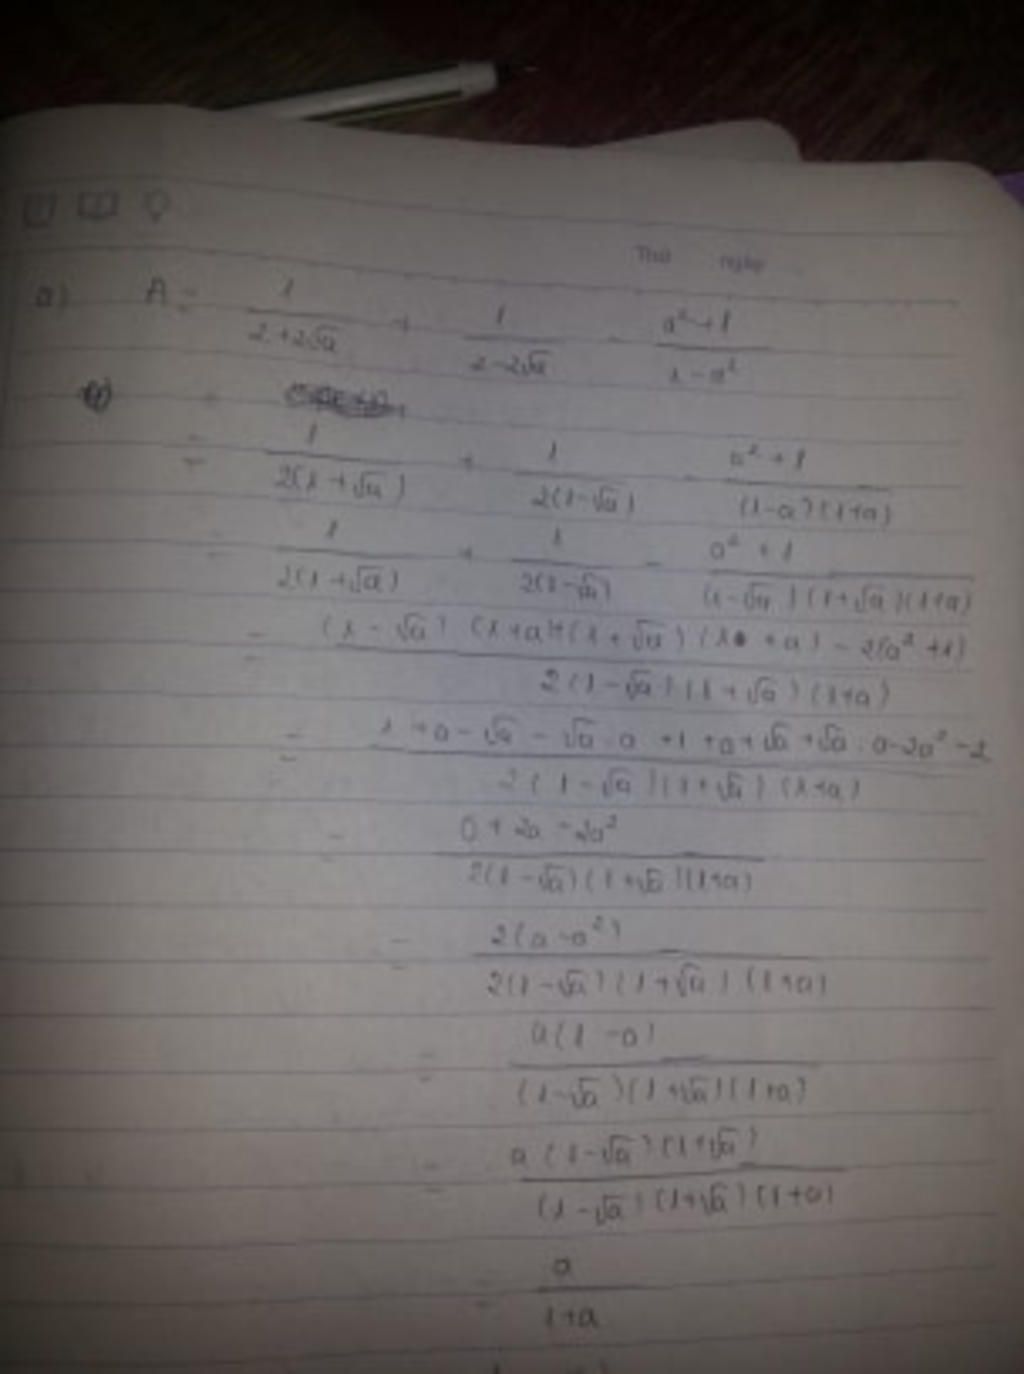 Thứ ngày
a) A = 1/(2+2√a) + 1/(2-2√a) - (a²+1)/(1-a²)
= 1/(2(1+√a)) + 1/(2(1-√a)) - (a²+1)/((1-a)(1+a))
= 1/(2(1+√a)) + 1/(2(1-√a)) - (a²+1)/((1-√a)(1+√a)(1+a))
= ((1-√a)(1+a)+(1+√a)(1+a)-2(a²+1))/(2(1-√a)(1+√a)(1+a))
= (1+a-√a-√a.a+1+a+√a+√a.a-2a²-2)/(2(1-√a)(1+√a)(1+a))
= (0+2a-2a²)/(2(1-√a)(1+√a)(1+a))
= (2(a-a²))/(2(1-√a)(1+√a)(1+a))
= (a(1-a))/((1-√a)(1+√a)(1+a))
= (a(1-√a)(1+√a))/((1-√a)(1+√a)(1+a))
= a/(1+a)